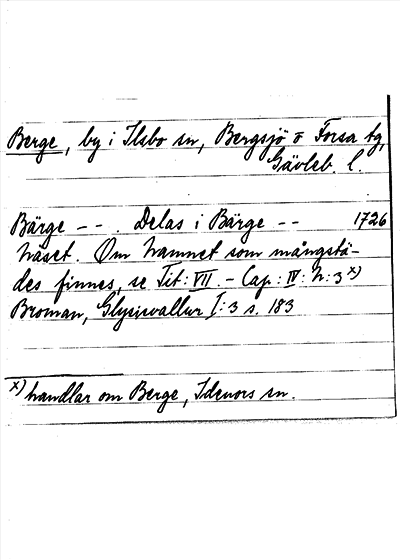 Berge, by i Ilsbo sn, Bergsjö o Forsa tg,
Gävleb. l.
Bärge -- . Delas i Bärge -- 1726
Näset. Om Namnet som mångstä-
des finnes, se Tit: VII. - Cap: IV: N: 3 x)
Broman, Glysisvallur I: 3 s. 183
x) handlar om Berge, Idenors sn.